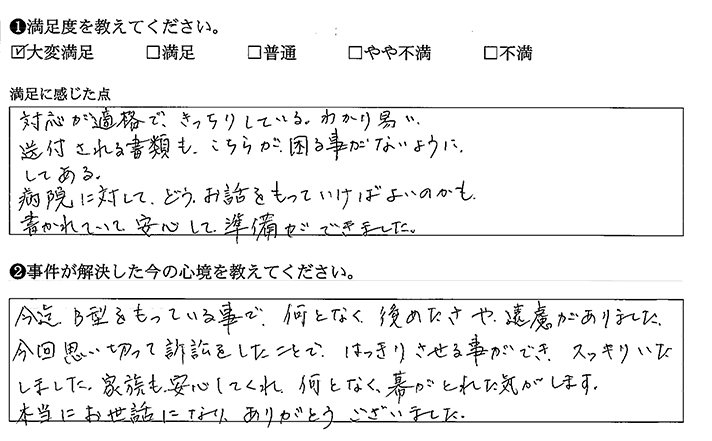 ❶満足度を教えてください。
☑大変満足 □満足 □普通 □やや不満 □不満
満足に感じた点
対応が適格で、きっちりしている。わかり易い、
送付される書類も、こちらが、困る事がないように、
してある。
病院に対して、どう、お話をもっていけばよいのかも、
書かれていて、安心して、準備ができました。
❷事件が解決した今の心境を教えてください。
今迄、B型をもっている事で、何となく、後めたさや、遠慮がありました、
今回思い切って訴訟をしたことで、はっきりさせる事ができ、スッキリいた
しました。家族も、安心してくれ、何となく、幕がとれた気がします。
本当にお世話になり、ありがとうございいました。